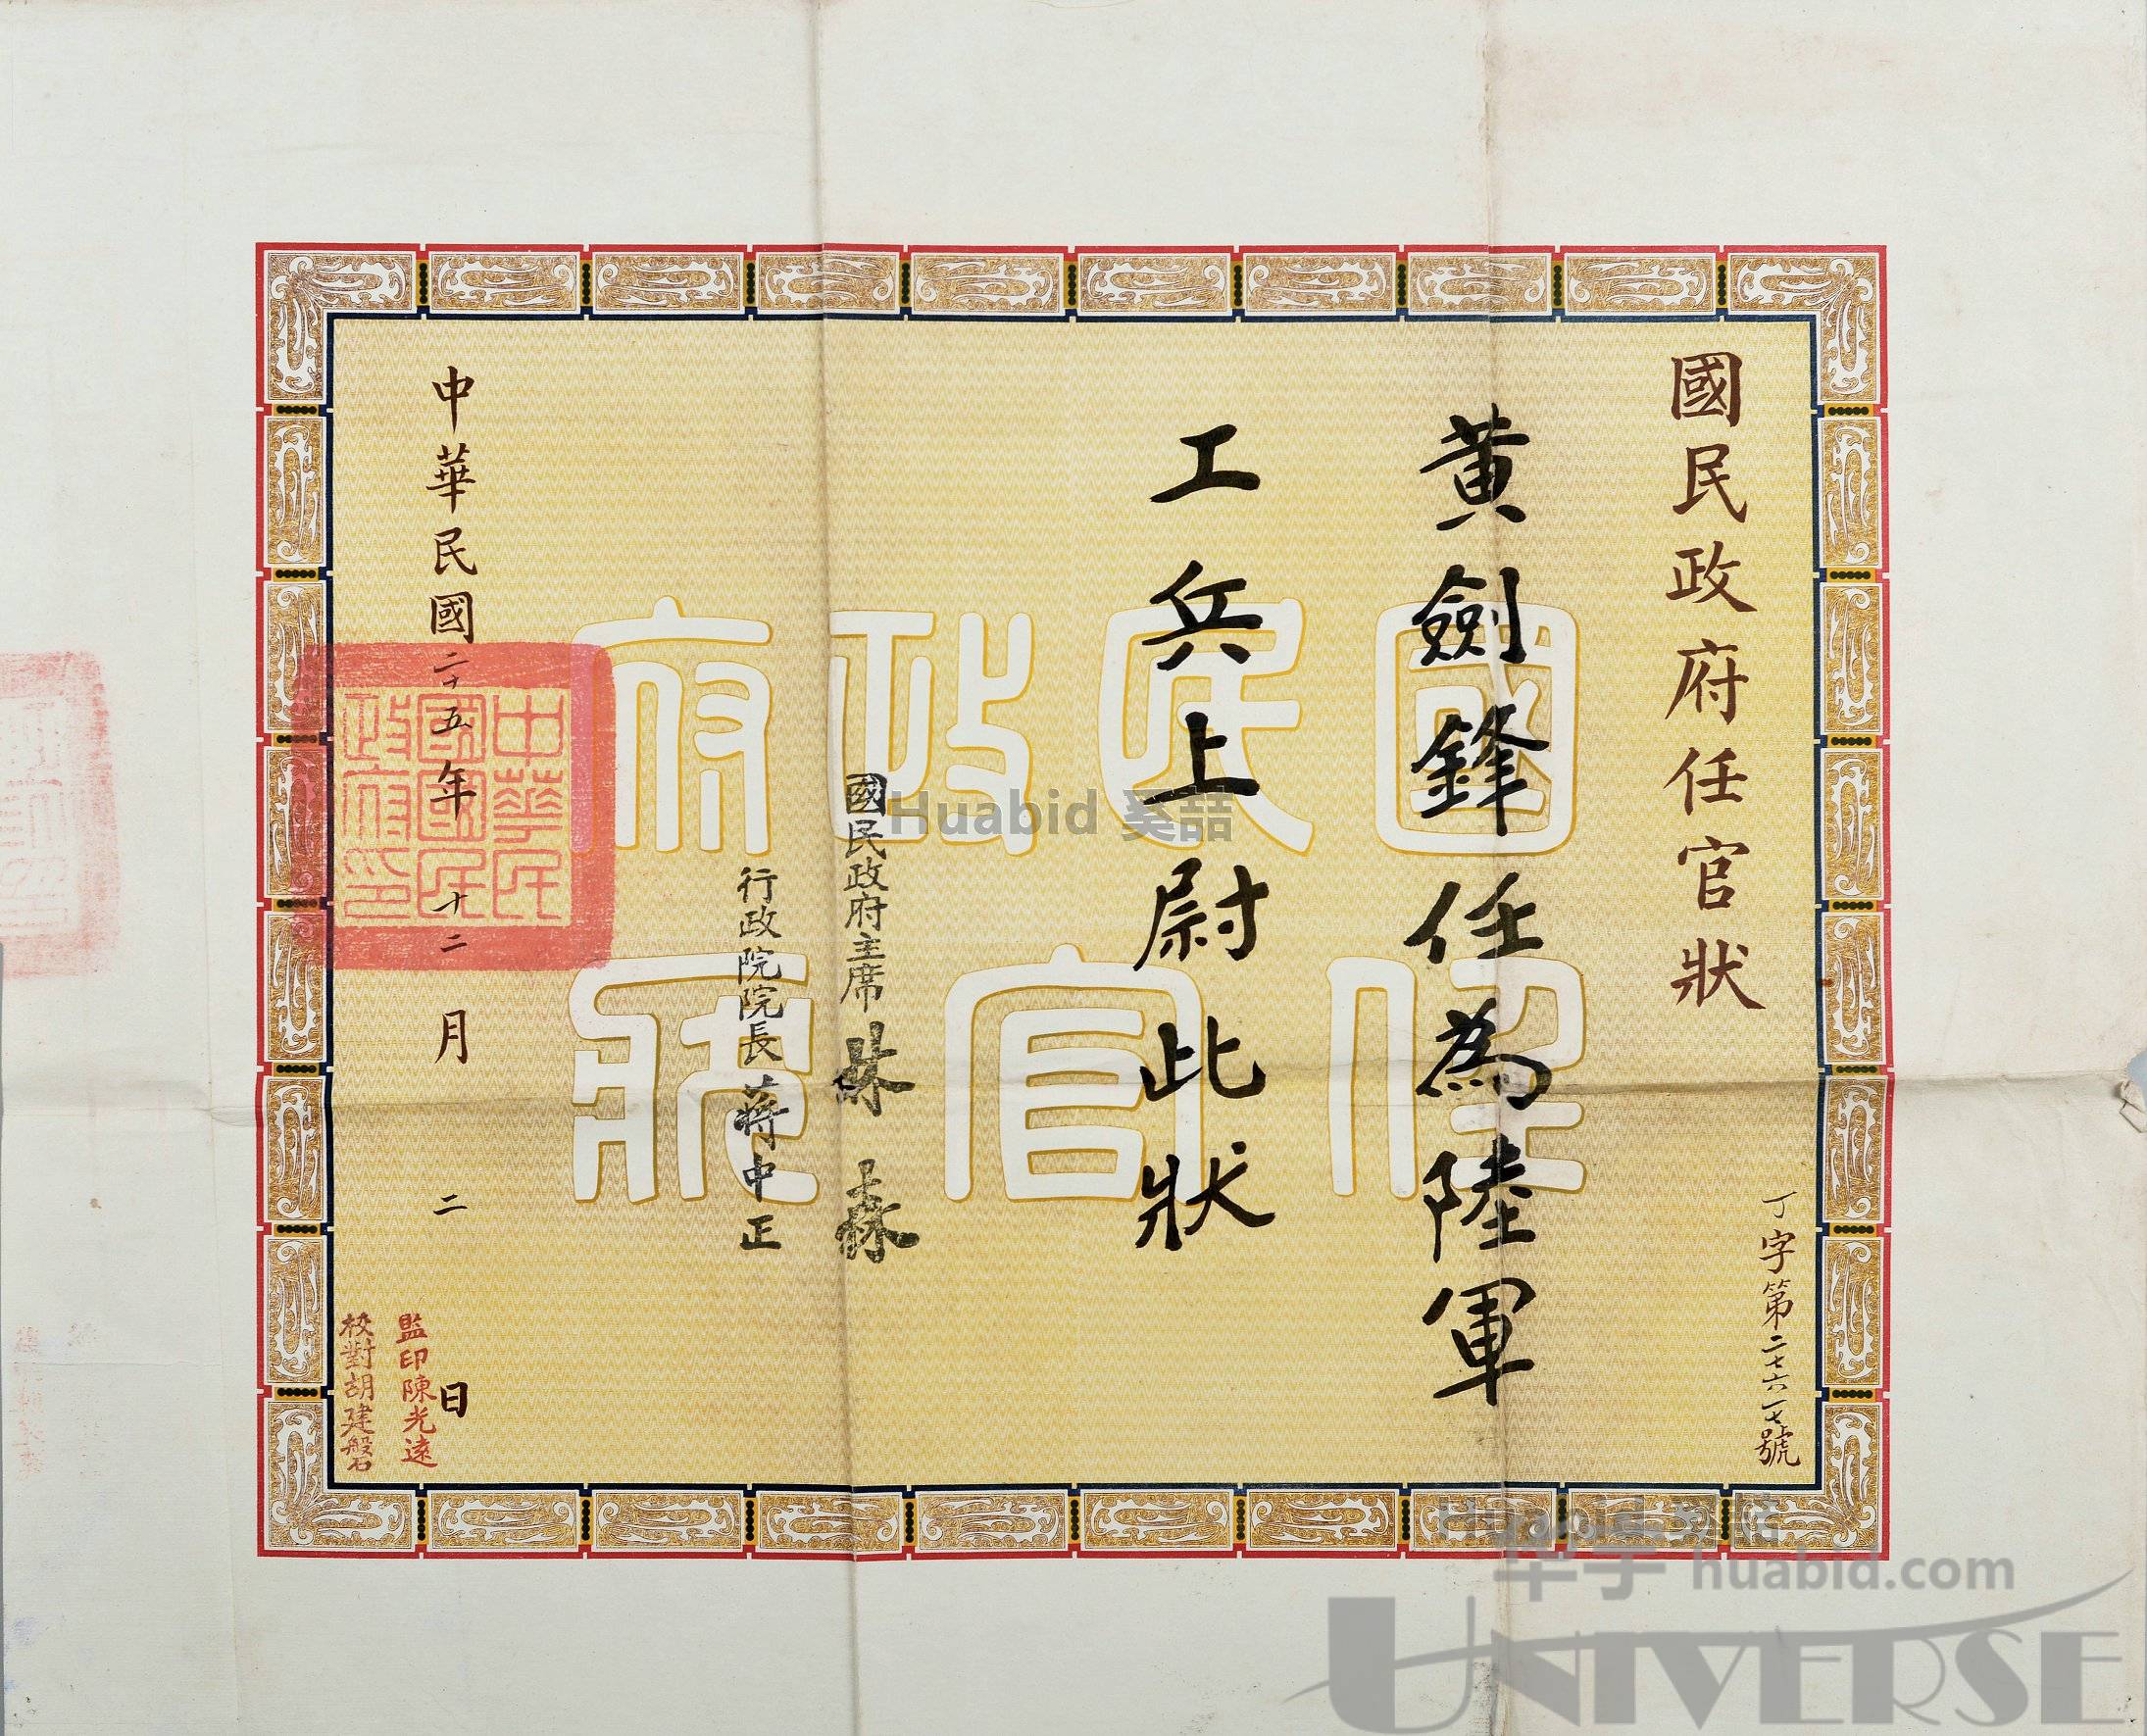 國民政府任官狀
丁字第二七六一七號
黃劍鋒任為陸軍
工兵上尉此狀
國民政府主席 林森
行政院院長 蔣中正
中華民國二十五年十二月二日
監印陳光遠
校對胡建磐
國民政府
任官狀
中華民
國國民
政府印
Huabid 奚喆
Huabid 奚喆
华宇 huabid.com
UNIVERSE